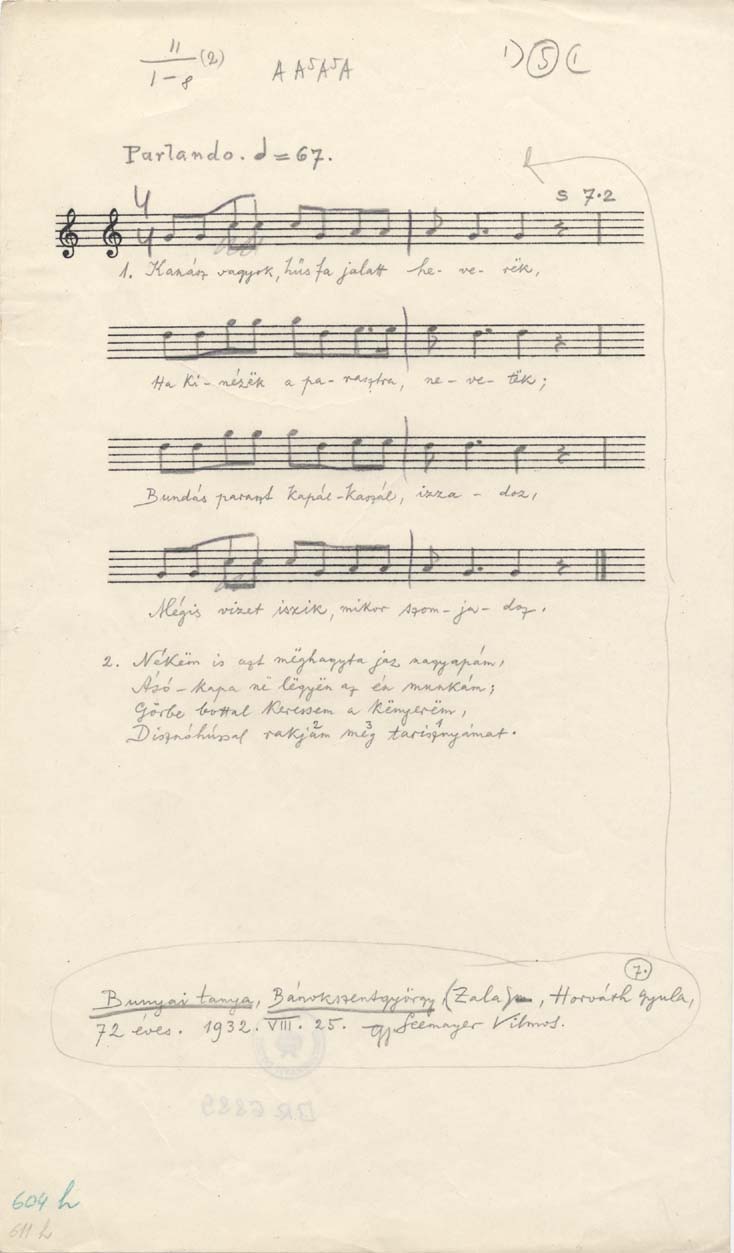 11 (2)
1-8
A A⁵A⁵A
1) 5 (1
Parlando. ♩=67.
s 7·2
4
4
1. Kanász vagyok, hűs fa jalatt he- ve- rëk,
Ha ki- nézëk a pa- rasztra, ne- ve- tëk;
Bundás paraszt kapál-kaszál, izza - doz,
Mégis vizet iszik, mikor szom- ja- doz.
2. Nékëm is azt mëghagyta jaz nagyapám,
Ásó-kapa në lëgyën az én munkám;
Görbe bottal keressem a kënyerëm,
Disznóhússal rakjam2 még3 tarisznyámat1.
7.
Bunyai tanya, Bánokszentgyörgy (Zala), Horváth Gyula,
72 éves. 1932. VIII. 25. gy Seemayer Vilmos.
BR 6889
604 h
611 h